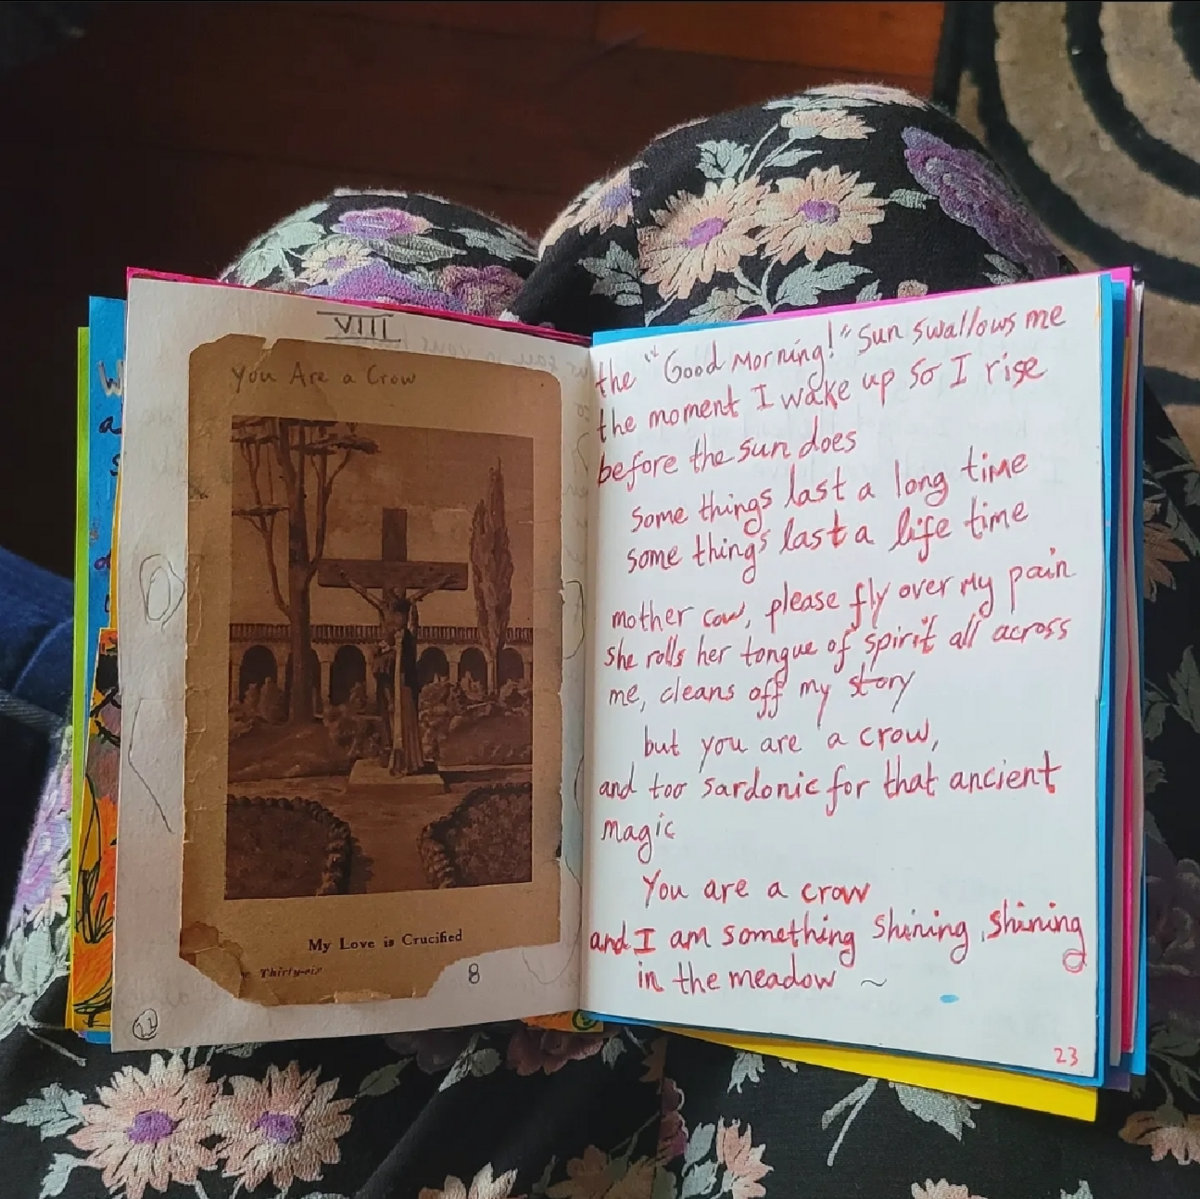 VIII
You Are a Crow
My Love is Crucified
Thirty-six
8
22
the "Good Morning!" Sun swallows me
the moment I wake up so I rise
before the sun does
some things last a long time
some things last a life time
mother cow, please fly over my pain
she rolls her tongue of spirit all across
me, cleans off my story
but you are a crow,
and too sardonic for that ancient
magic
You are a crow
and I am something shining, shining
in the meadow ~
23